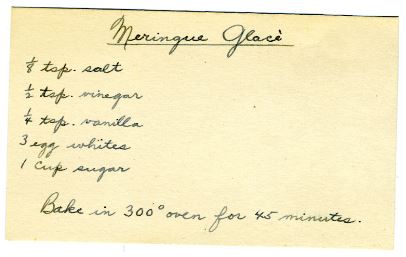 Meringue Glacè
⅛ tsp. salt
½ tsp. vinegar
¼ tsp. vanilla
3 egg whites
1 cup sugar
Bake in 300° oven for 45 minutes.